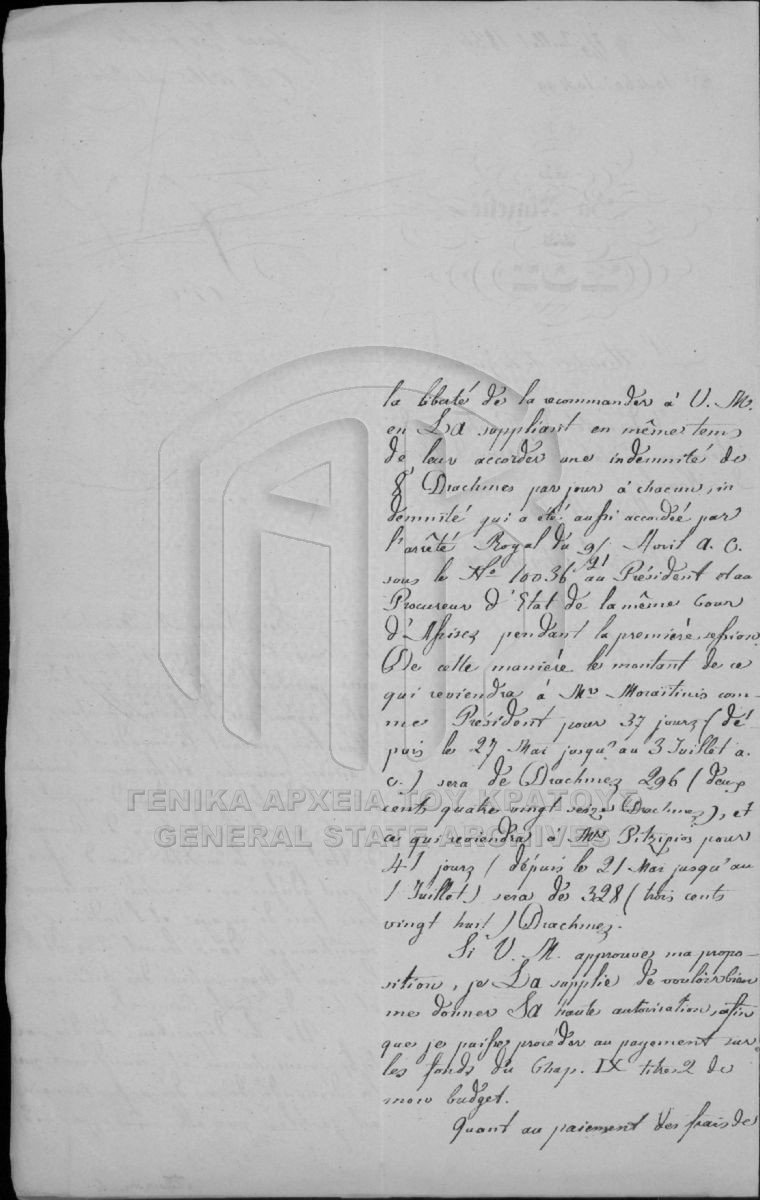 la liberté de la recommander à V. M.
en La suppliant en même tems
de leur accorder une indemnité de
8 Drachmes par jour à chacun, in
demnité qui a été aussi accordée par
l'arrêté Royal du 9/21 Avril a. c.
sous le No 10036 au Président et au
Procureur d'Etat de la même Cour
d'Assises pendant la première session
De cette manière le montant de ce
qui reviendra à Mr Moraïtinis com-
me Président pour 37 jours (dé-
puis le 27 Mai jusqu'au 3 Juillet a.
c.) sera de Drachmes 296 (deux
cents quatre vingt seize Drachmes), et
ΓΕΝΙΚΑ ΑΡΧΕΙΑ ΤΟΥ ΚΡΑΤΟΥΣ
GENERAL STATE ARCHIVES
ce qui reviendra à Mr Pitzipios pour
41 jours (dépuis le 21 Mai jusqu'au
1 Juillet) sera de 328 (trois cents
vingt huit) Drachmes.
Si V. M. approuve ma propo-
sition, je La supplie de vouloir bien
me donner Sa haute autorisation, afin
que je puisse procéder au payement sur
les fonds du Chap. IX titre 2 de
mon budget.
Quant au paiement des frais de